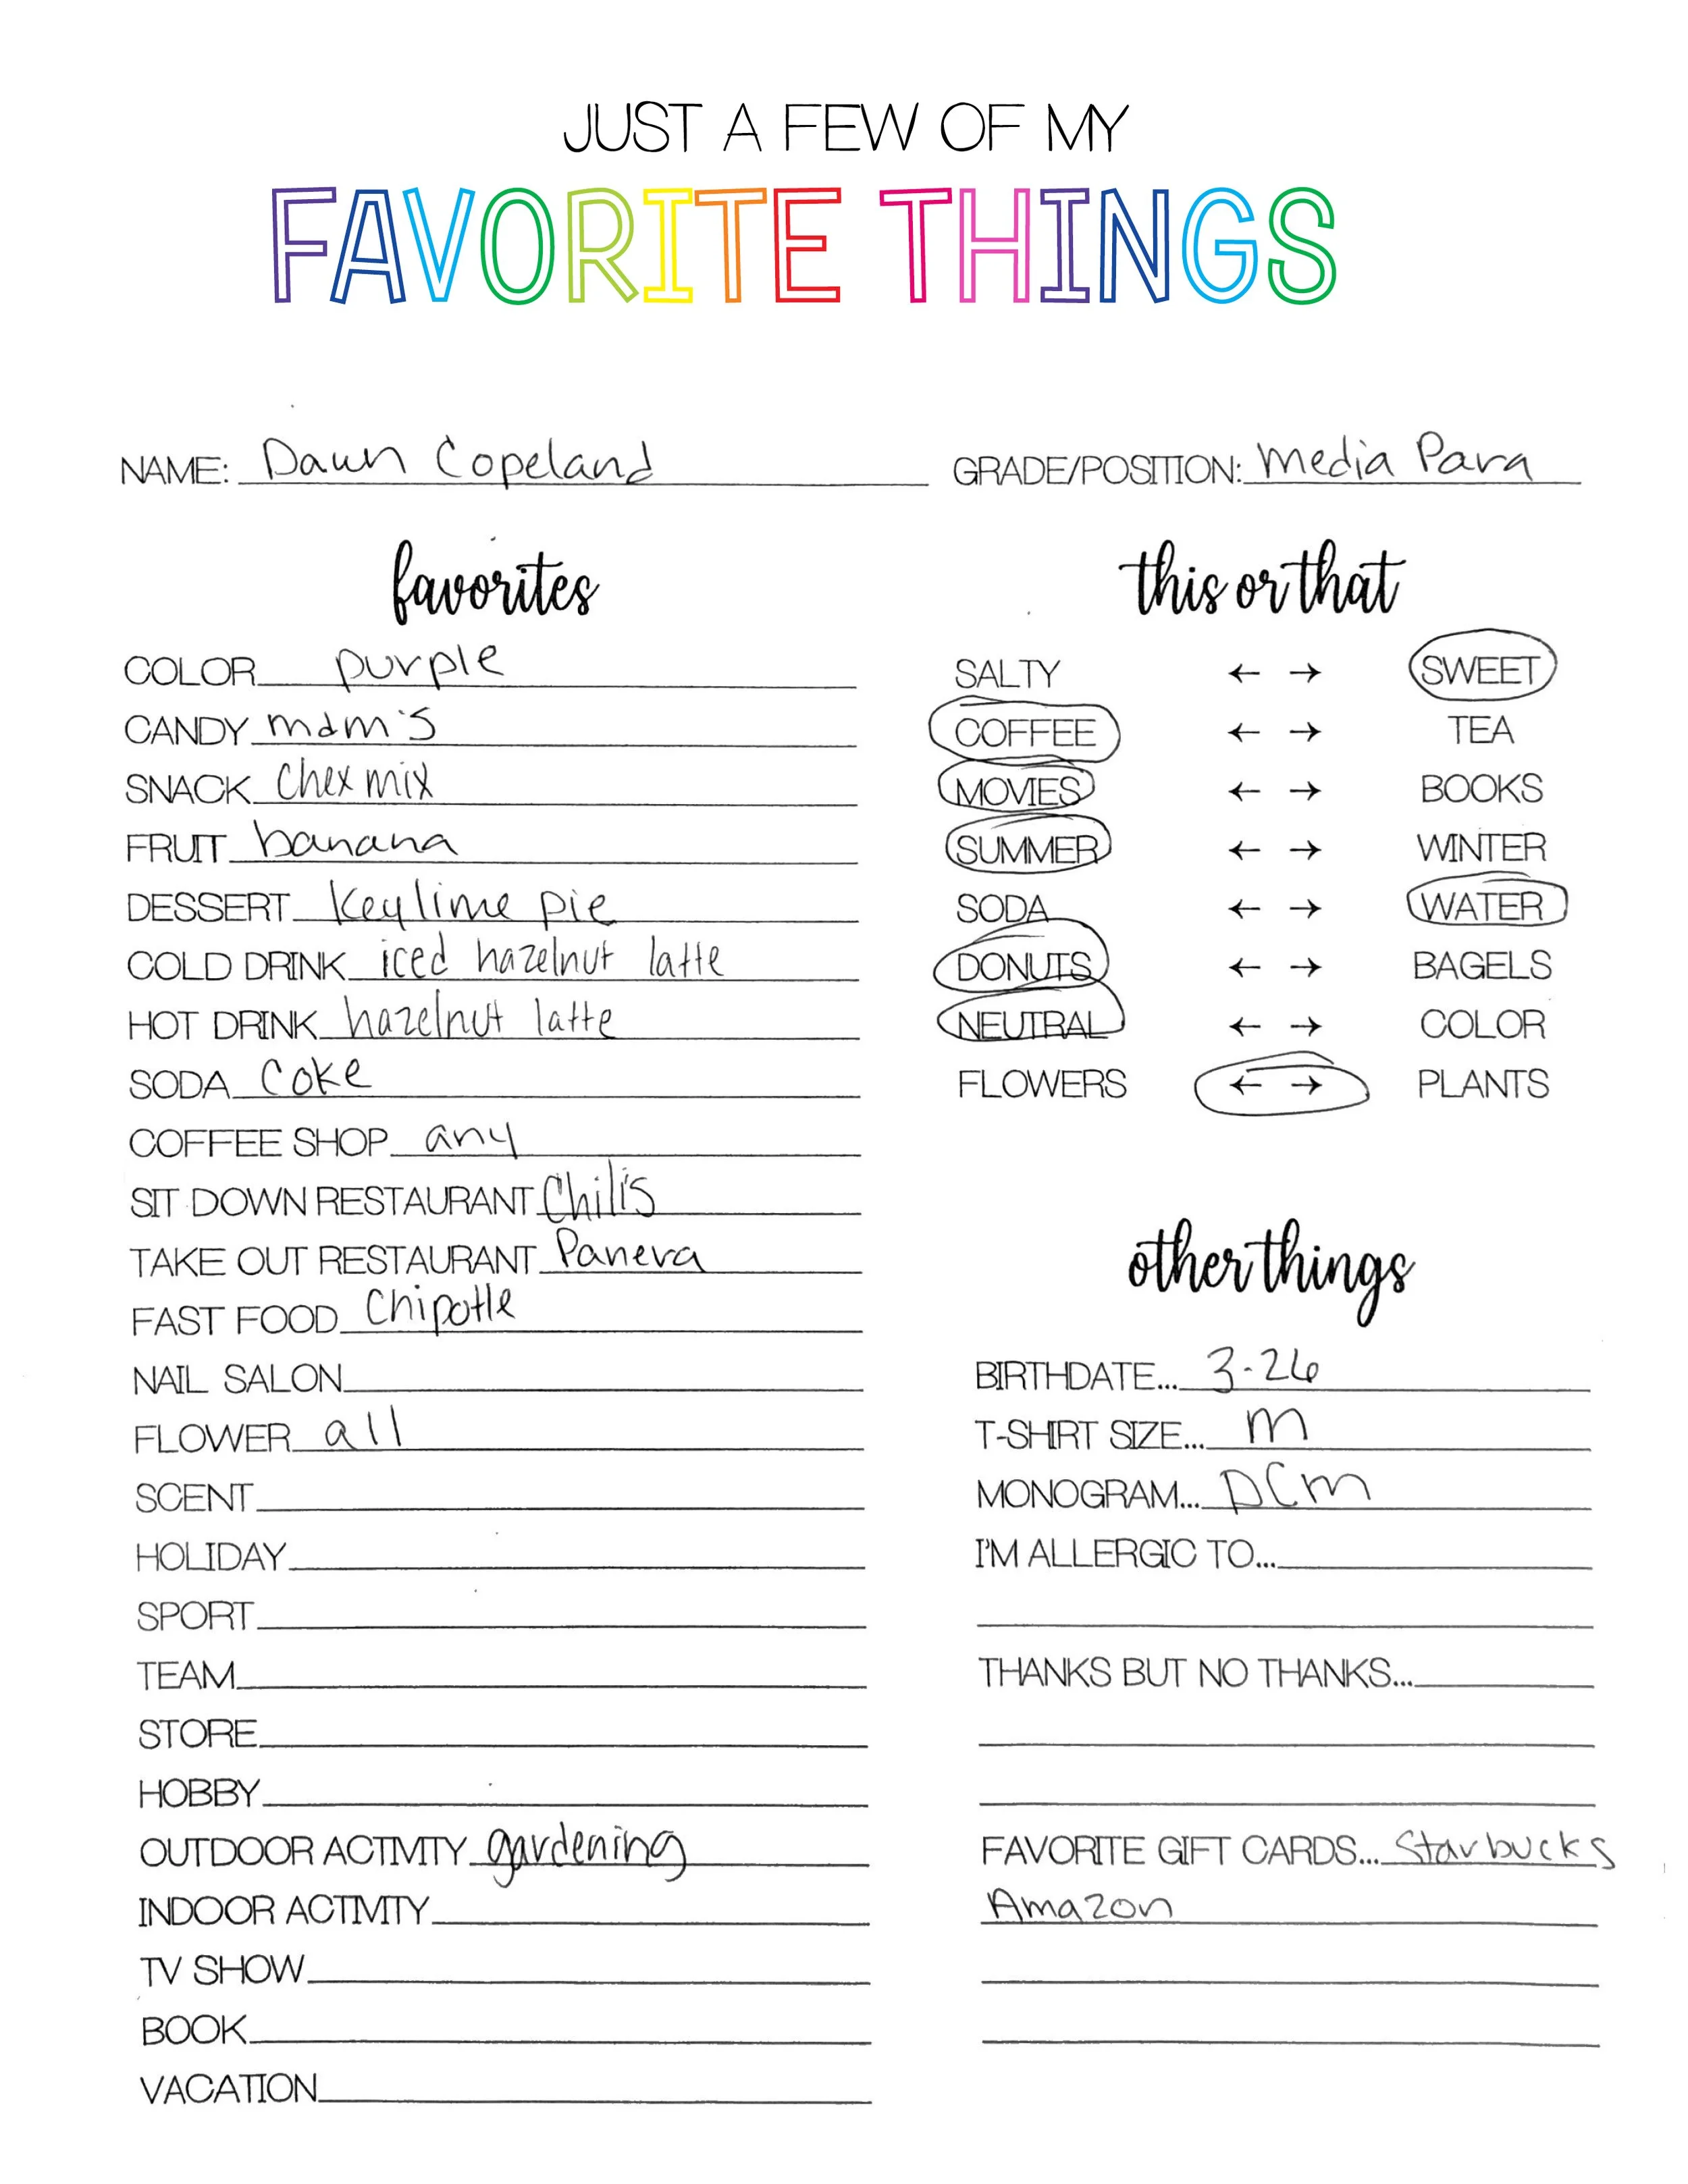 JUST A FEW OF MY
FAVORITE THINGS
NAME: Dawn Copeland
GRADE/POSITION: Media Para
favorites
COLOR purple
CANDY m&m's
SNACK Chex mix
FRUIT banana
DESSERT Key lime pie
COLD DRINK iced hazelnut latte
HOT DRINK hazelnut latte
SODA Coke
COFFEE SHOP any
SIT DOWN RESTAURANT Chili's
TAKE OUT RESTAURANT Panera
FAST FOOD Chipotle
NAIL SALON
FLOWER all
SCENT
HOLIDAY
SPORT
TEAM
STORE
HOBBY
OUTDOOR ACTIVITY gardening
INDOOR ACTIVITY
TV SHOW
BOOK
VACATION
this or that
SALTY ← → SWEET
COFFEE ← → TEA
MOVIES ← → BOOKS
SUMMER ← → WINTER
SODA ← → WATER
DONUTS ← → BAGELS
NEUTRAL ← → COLOR
FLOWERS ← → PLANTS
other things
BIRTHDATE... 3-26
T-SHIRT SIZE... m
MONOGRAM... DCm
I'M ALLERGIC TO...
THANKS BUT NO THANKS...
FAVORITE GIFT CARDS... Starbucks
Amazon